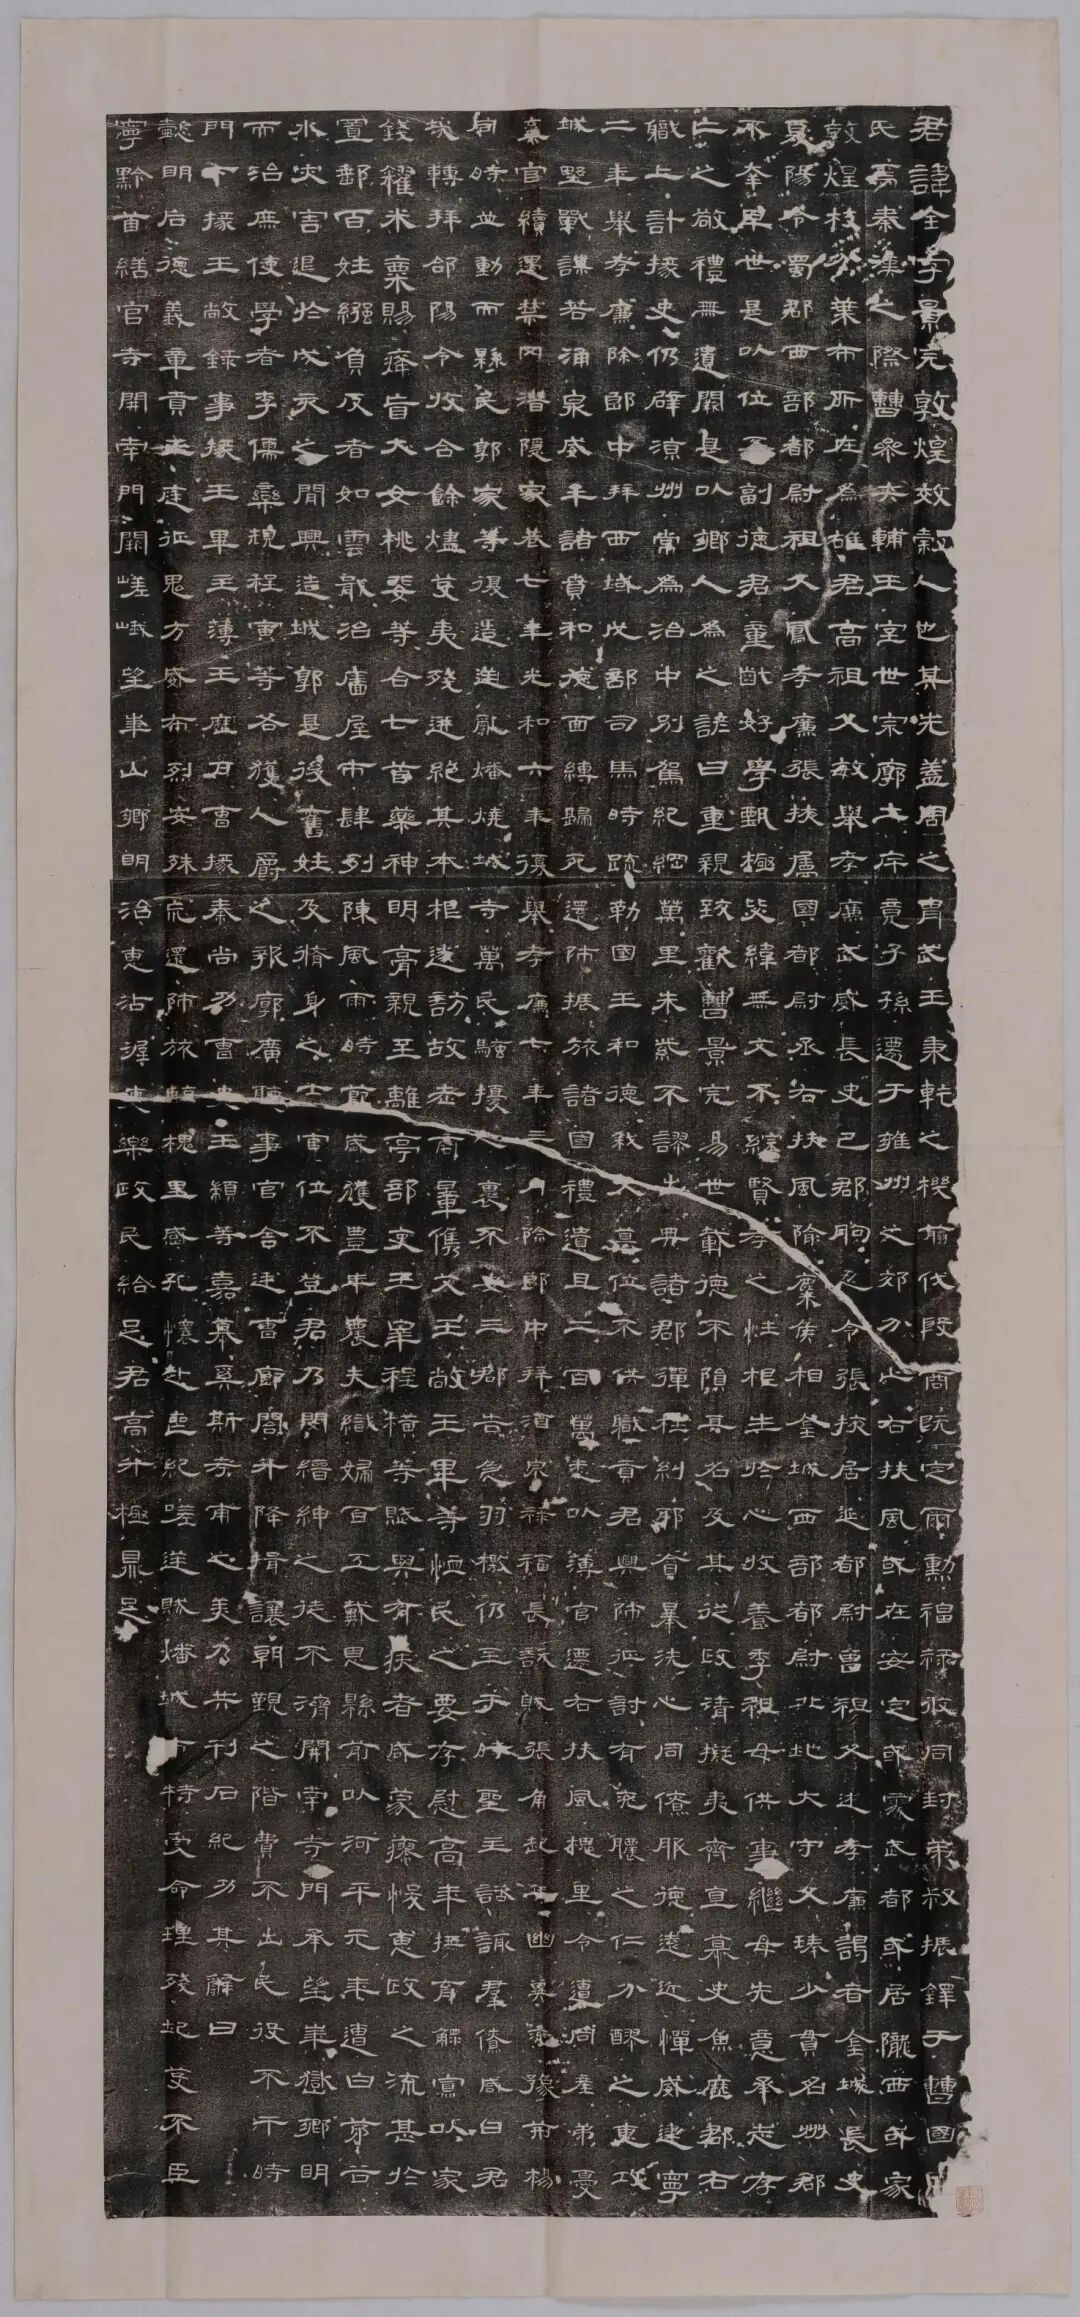 君諱全字景完敦煌效穀人也其先蓋周之冑武王秉乾之機翦伐殷商既定爾勳福祿攸同封弟叔振鐸于曹國因
氏焉秦漢之際曹參夾輔王室世宗廓土斥竟子孫遷于雍州之郊分止右扶風或在安定或處武都或居隴西或家
敦煌枝分葉布所在為雄君高祖父敏舉孝廉武威長史巴郡朐忍令張掖居延都尉曾祖父述孝廉謁者金城長史
夏陽令蜀郡西部都尉祖父鳳孝廉張掖屬國都尉丞右扶風隃麋侯相金城西部都尉北地大守父琫少貫名州郡
不幸早世是以位不副德君童齔好學甄極毖緯無文不綜賢孝之性根生於心收養季祖母供事繼母先意承志存
亡之敬禮無遺闕是以鄉人為之諺曰重親致歡曹景完易世載德不隕其名及其從政清擬夷齊直慕史魚歷郡右
職上計掾史仍辟涼州常為治中別駕紀綱萬里朱紫不謬出典諸郡彈枉糾邪貪暴洗心同僚服德遠近憚威建寧
二年舉孝廉除郎中拜西域戊部司馬時疏勒國王和德弒父篡位不供職貢君興師征討有兗膿之仁分醪之惠攻
城野戰謀若涌泉威牟諸賁和德面縛歸死還師振旅諸國禮遺且二百萬悉以簿官遷右扶風槐里令遭同產弟憂
棄官續遇禁网潛隱家巷七年光和六年復舉孝廉七年三月除郎中拜酒泉祿福長訞賊張角起兵幽冀兗豫荊楊
同時並動而縣民郭家等復造逆亂燔燒城寺萬民騷擾人裹不安三郡告急羽檄仍至于時聖主諮諏群僚咸曰君
哉轉拜郃陽令收合餘燼芟夷殘迸絕其本根遂訪故老商量儁艾王敞王畢等恤民之要存慰高年撫育鰥寡以家
錢糴米粟賜癃盲大女桃婓等合七首藥神明膏親至離亭部吏王宰程橫等賦與有疾者咸蒙瘳悛惠政之流甚於
置郵百姓繈負反者如雲戢治廧屋市肆列陳風雨時節歲獲豐年農夫織婦百工戴恩縣前以河平元年遭白茅谷
水灾害退於戊亥之間興造城郭是後舊姓及脩身之士官位不登君乃閔縉紳之徒不濟開南寺門承望華嶽鄉明
而治庶使學者李儒欒規程寅等各獲人爵之報廓廣聽事官舍廷曹廊閤升降揖讓朝覲之階費不出民役不干時
門下掾王敞錄事掾王畢主簿王歷戶曹掾秦尚功曹史王顓等嘉慕奚斯考甫之美乃共刊石紀功其辭曰
懿明后德義章貢王庭征鬼方威布烈安殊荒還師旅臨槐里感孔懷赴喪紀嗟逆賊燔城市特受命理殘圮芟不臣
寧黔首繕官寺開南門闕嵯峨望華山鄉明治惠沾渥吏樂政民給足君高升極鼎足